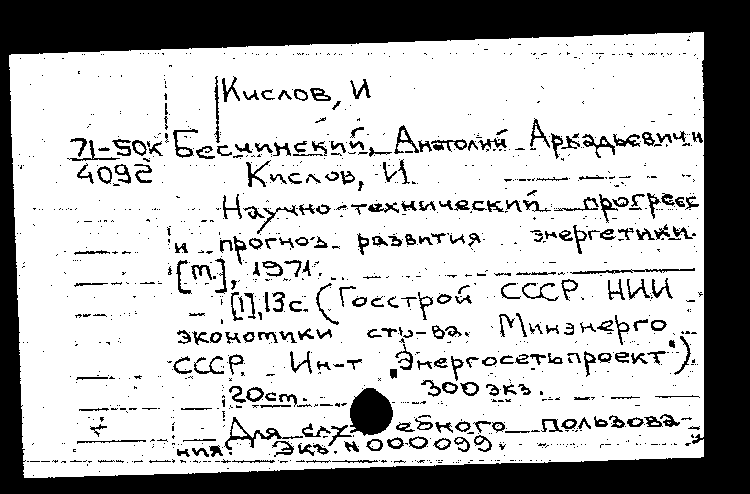 Кислов, И
71-50к Бесчинский, Анатолий Аркадьевич и
4092 Кислов, И.
Научно-технический прогресс
и прогноз развития энергетики.
[т.], 1971.
[1], 13с. (Госстрой СССР. НИИ
экономики стр-ва. Минэнерго
СССР. Ин-т „Энергосетьпроект")
20ст. 300 экз.
Для служебного пользова-
ния. Экз. N 000099.